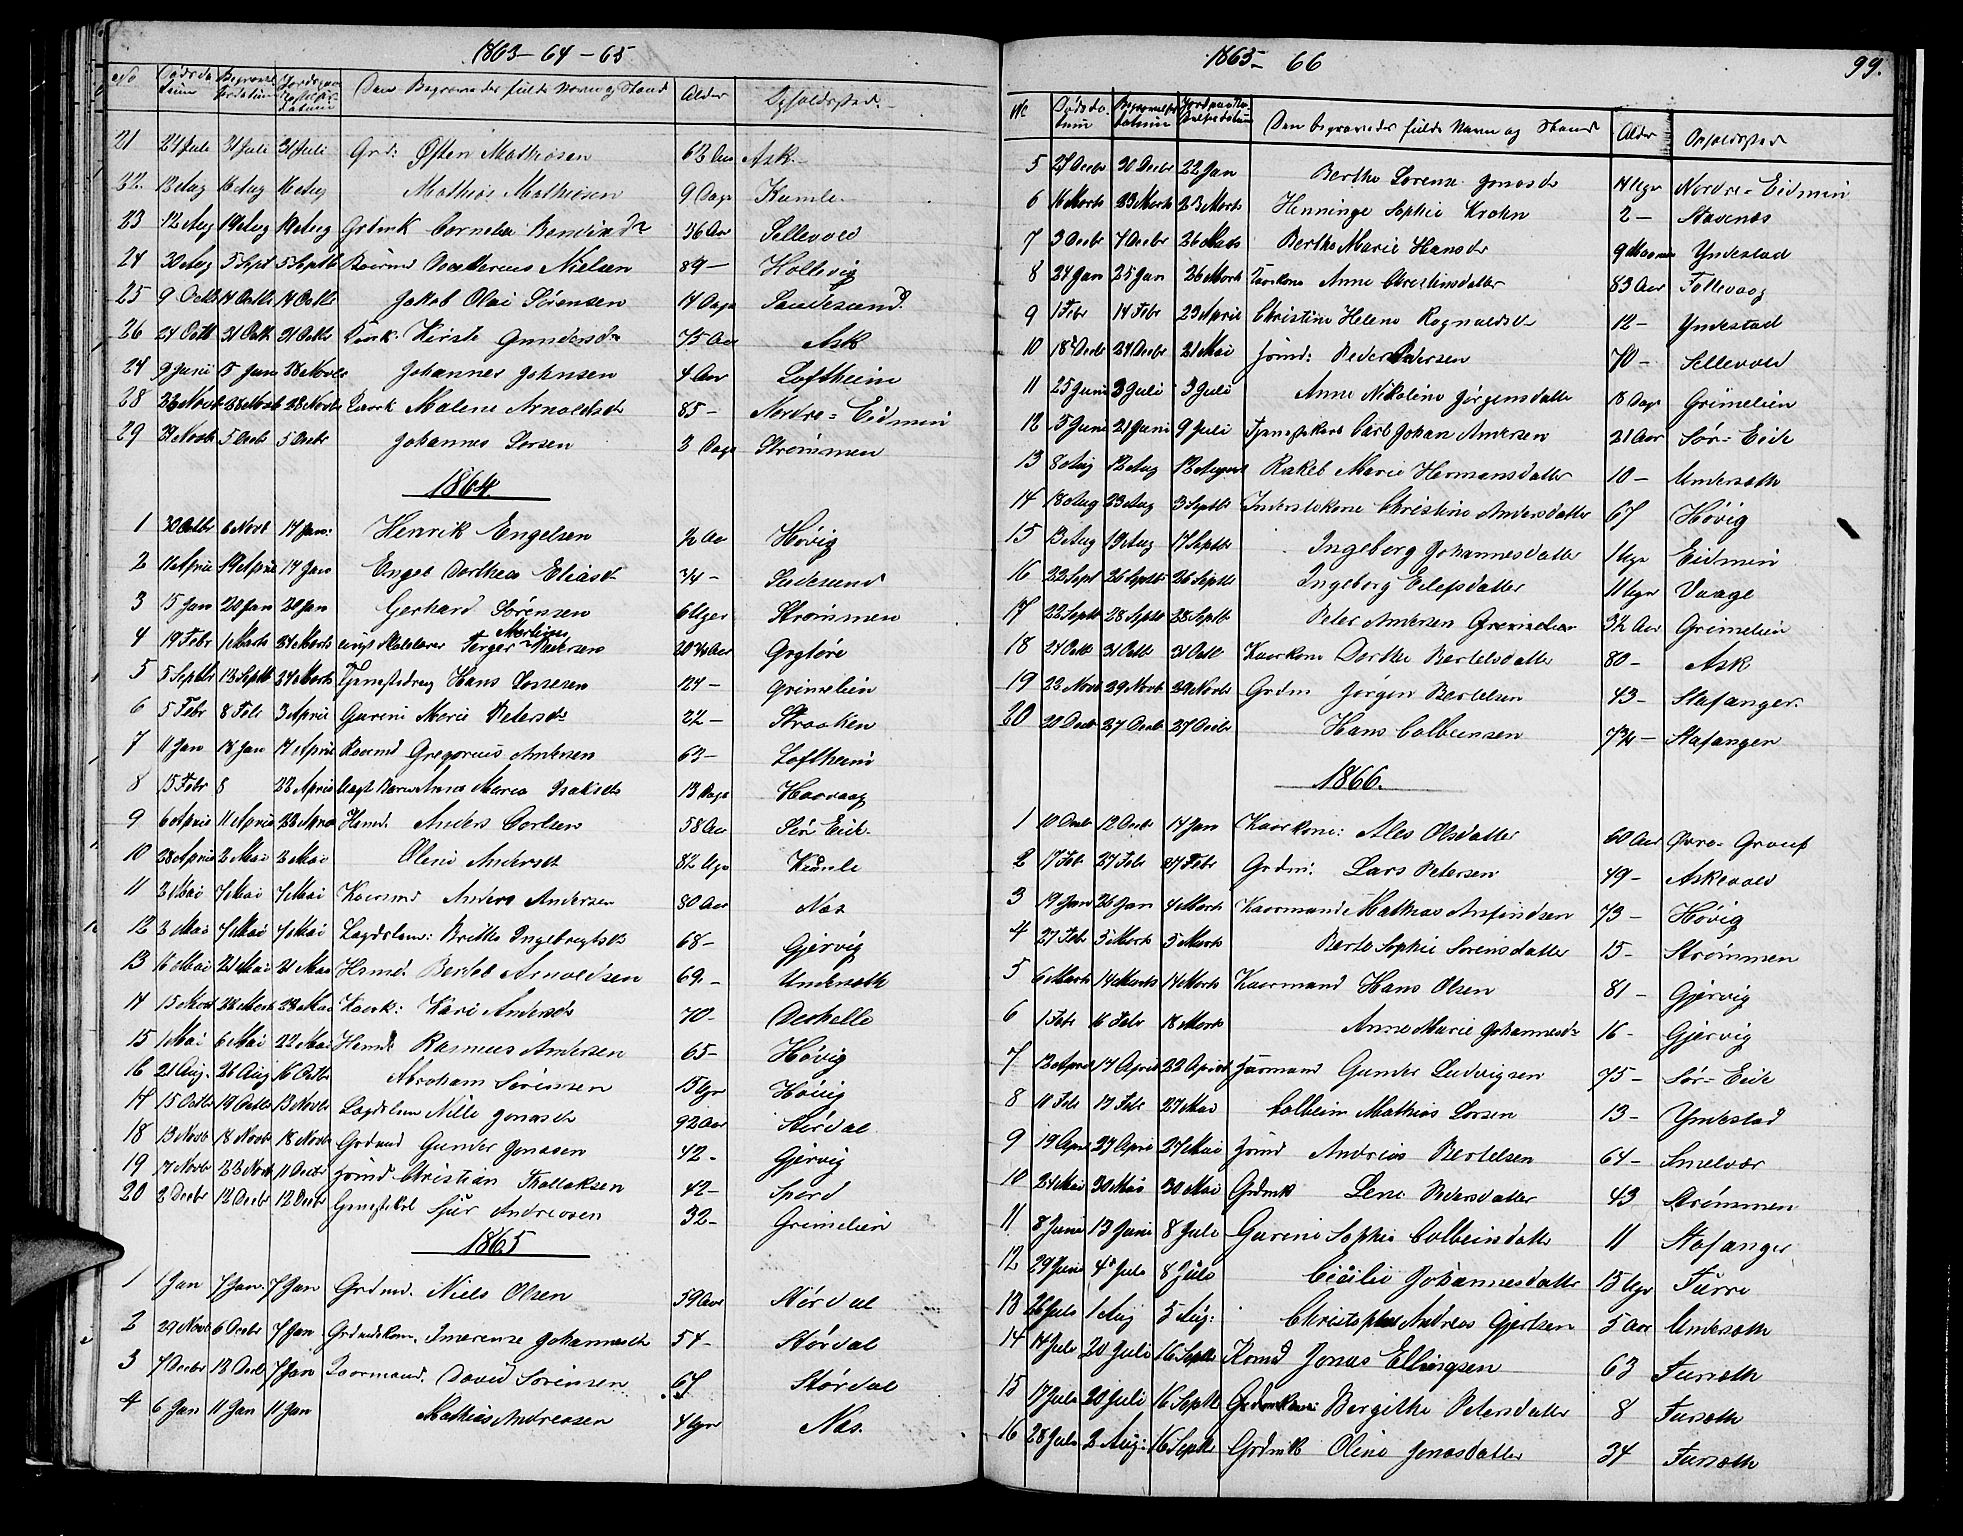 1863-64-65
No Dødsda tum Begravel Datum Jordpaa Kastelse datum Den Begravedes fulde Navn og Stand Alder Opholdssted
21 24 Juli 31 Juli 31 Juli Grd: Østen Mathiesen 62 Aar Ask
22. 12 Aug 16 Aug 16 Aug Mathias Mathiesen 9 Dage Kumle
23 12 Aug 19 Aug 19 Aug Grdmk Cornelia Bendixdr 36 Aar Sellevold
24 30 Aug 5 Sept 5 Septb Nielsen 89 — Holtevig
25 9 Octb 14 Octb 14 Octb Jakob Olai Sørensen 14 Dage Sandesund
26 24 Octb 31 Octb 31 Octb Kaark. Kirste Gundersdr 75 Aar Ask
24 9 Juni 15 Juni 28 Novb Johannes Johnsen 4 Aar Loftheim
28 22 Novb 28 Novb 28 Novb Kaark Malene Arnoldsdr 85 — Nordre-Eidmin
29 Novb 5 Decb 5 Decbr Johannes Larsen 3 Dage Strømmen
1864
1 30 Octbr 6 Novb 17 Jan: Henrik Engelsen ½ Aar Høvig
2 11 April 19 April 17 Jan Engel Dorthea Eliasdr ¾ — Sandesund
3 15 Jan 20 Jan 20 Jan Gerhard Sørensen 6 Uger Strømmen
4 19 Febr 1 Marts 24 Marts Skolelærer Terger Martinus Andersen 20¾ Aar
5 5 Septbr 13 Septb 24 Marts Tjenestedreng Hans Lassesen 17 — Grimelien
6 5 Febr 8 Feb 3 April Gurine Marie Petersdr 22 — Straaken
7 11 Jan 18 Jan 17 April Kaarmd Gregorius Andersen 63 — Loftheim
8 15 Febr 8 22 April Uægte Barn Anna Maria Isaksdr 13 Dage Haavaag
9 6 April 11 April 22 April Hsmd. Anders Carlsen 58 Aar Sør Eid.
10 28 April 2 Mai 2 Mai Oline Andersdr 8½ Uge Kumle
11 2 Mai 7 Mai 7 Mai Kaarmd Anders Andersen 80 Aar Nas
12 2 Mai 7 Mai 7 Mai Lægdslem: Britte Ingebrigtsdr 68 — Gjervig
13 16 Mai 21 Mai 21 Mai Hsmd Bertel Arnoldsen 69 — Undersæth
14 15 Mart 22 Mart 22 Mai Kaark: Kari Andersdr 70 — Deknelle
15 1 Mai 6 Mai 22 Mai Hsmd Rasmus Andersen 65 — Høvig
16 21 Aug. 26 Aug 16 Octb Abraham Sørensen 15 Uger Høvig
17 15 Octb 19 Octb 13 Novb Lægdslem Nille Jonasdr 92 Aar Stordal
18 13 Novb 18 Novb 18 Novb Grdmd Gunder Jonasen 42 — Gjervig
19 17 Novb 22 Novb 11 Decbr Jsmd Christian Thollaksen 42 — Spord
20 2 Decbr 12 Decbr 12 Decbr Tjenestekal Sjur Andreasen 32 — Grimelien
1865
1 1 Jan 7 Jan. 7 Jan Grdmd. Niels Olsen 59 Aar Stordal
2 29 Novb 6 Decbr 7 Jan Grdmdskone. Imerense Johannesdr 54 — Stordal
3 7 Decbr 12 Decb 7 Jan Kaarmand. David Sørensen 67 Stordal
4 6 Jan 11 Jan 11 Jan Mathias Andreasen 4 Uger Nas.
1865- 66
99.
No Dødsda tum Begravelse datum Jordpaakas telsedatum Den begravedes fulde Navn og Stand Alder Opholdssted
5 27 Decbr 30 Decbr 22 Jan Berthe Lorense Jonasdr 14 Uger Nordre-Eidmin
6 16 Marts 23 Marts 23 Marts Henninge Sophie Krohn 2 — Stavenæs
7 3 Decbr 7 Decbr 26 Marts Berthe Marie Hansdr 9 Maaner Yndestad
8 24 Jan 25 Jan 26 Marts Kaarkone Anne Christensdatter 83 Aar Follevaag
9 1 Febr 14 Febr 23 April Christine Helene Rognaldsdr 12 — Yndestad
10 18 Decbr 24 Decbr 21 Mai Jsmd: Peder Pedersen 70 — Sellevold
11 25 Juni 3 Juli 3 Juli Anne Nikoline Jørgensdatter 18 Dage Grimelien
12 15 Juni 21 Juni 9 Juli Tjenestekarl Carl Johan Andersen 21 Aar Sør-Eid
13 8 Aug 12 Aug 12 August Rakel Marie Hermansdatter 10 — Undersæth
14 18 Aug 23 Aug 3 Septb Inderstekone Christine Andersdatter 67 Høvig
15 13 Aug 19 Aug 17 Septb Ingeborg Johannesdatter 1 Uge Eidmin
16 22 Sept 26 Septb 26 Septb Ingeborg Eilefsdatter 11 Uger Vaage
17 22 Septb 28 Septb 28 Septb Peter Andersen Grimelien 3½ Aar Grimelien
18 24 Octb 31 Octb 31 Octb Kaarkone Dorthe Bertelsdatter 80 — Ask
19 22 Novb 29 Novb 29 Novb Grdm Jørgen Bertelsen 43 — Stafanger
20 20 Decb 27 Decb 27 Decbr Hans Colbeinsen 7¾ — Stafanger
1866.
1 10 Decb 12 Decb 14 Jan Kaarkone: Ales Olsdatter 60 Aar Øvre-Grouf
2 17 Feb 27 Febr 27 Febr Grdm: Lars Petersen 49 — Askevold
3 19 Jan 26 Jan 4 Marts Kaarmand Mathias Anfindsen 73 — Høvig
4 27 Feb 5 Marts 5 Marts Berte Sophie Sørensdatter 15 — Strømmen
5 6 Marts 14 Marts 14 Marts Kaarmand Hans Olsen 81 — Gjervig
6 1 Febr 16 Febr 18 Marts Anne Marie Johannesdr 16 — Gjervig
7 12 April 17 April 22 April Jusmand Gunder Ludvigsen 75 — Sør-Eid
8 11 Febr 17 Febr 27 Mai Colbein Mathias Larsen 13 — Yndestad
9 19 Apr 27 April 27 Mai Jsmd Andreas Bertelsen 64 — Smelvær
10 24 Mai 30 Mai 30 Mai Grdmk Lene Pedersdatter 43 Strømmen
11 8 Juni 13 Juni 8 Juli Gurine Sophie Colbeinsdatter 11 Stafanger
12 29 Juni 4 Juli 8 Juli Cecilie Johannesdatter 15 Uger Furre
13 26 Juli 1 Aug 5 Aug: Christopher Andreas Gjertsen 5 Aar Undersæth
14 14 Juli 20 Juli 16 Septb Kmd Jonas Ellingsen 63 Fursæth
15 17 Juli 20 Juli 16 Septb Grdmkone: Bergithe Petersdatter 8 Fursæth
16 28 Juli 2 Aug: 16 Septb Grdmk Oline Jonasdatter 34 Fursæth